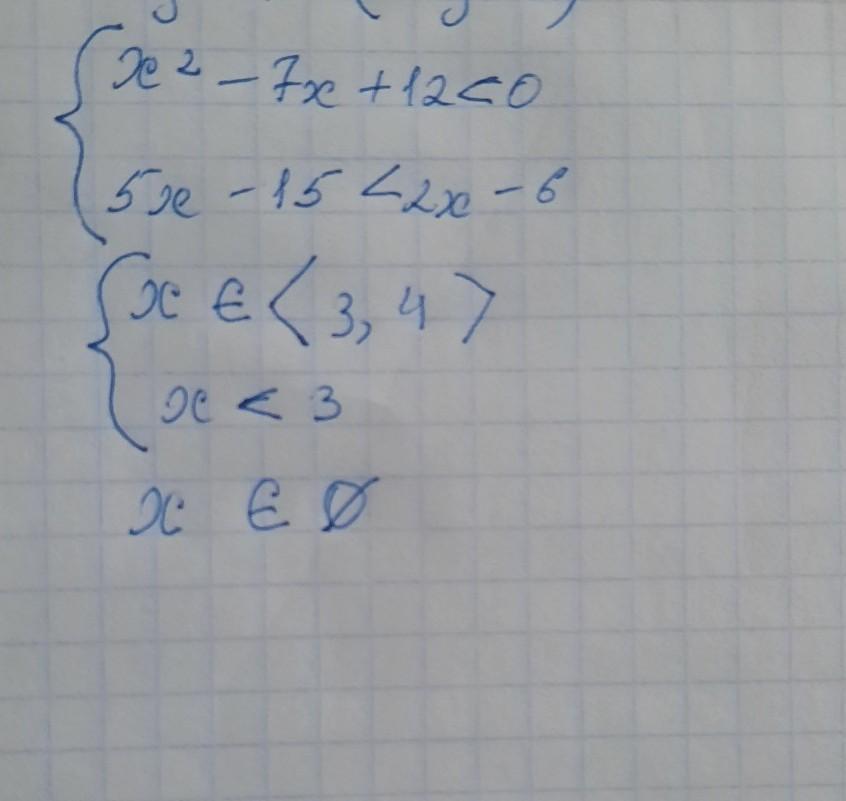 x² - 7x + 12 < 0
5x - 15 < 2x - 6
x ∈ ⟨3, 4⟩
x < 3
x ∈ ∅